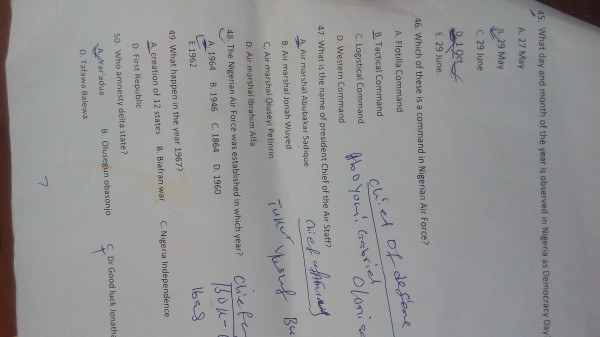 45. What day and month of the year is observed in Nigeria as Democracy Day
A. 27 May
B. 29 May
C. 29 June
D. 1 Oct
E. 29 June.
46. Which of these is a command in Nigerian Air Force?
A. Flotilla Command
B. Tactical Command
C. Logistical Command
D. Western Command
Chief Of defence
Gabriel
47. What is the name of president Chief of the Air Staff?
A. Air marshal Abubakar Sadique
B. Air marshal Jonah Wuyed
C. Air marshal Oluseyi Petinrin
D. Air marshal Ibrahim Alfa
Chief of
Yusuf Bu
48. The Nigerian Air Force was established in which year?
A. 1964 B. 1946 C. 1864 D. 1960
E. 1962
Chief
Ibas
49. What happen in the year 1967?
A. creation of 12 states B. Biafran war C. Nigeria Independence
D. First Republic
50. Who amnesty delta state?
A. Yar'adua B. Olusegun obasonjo C. Dr Good luck Jonatha
D. Tafawa Balewa
7